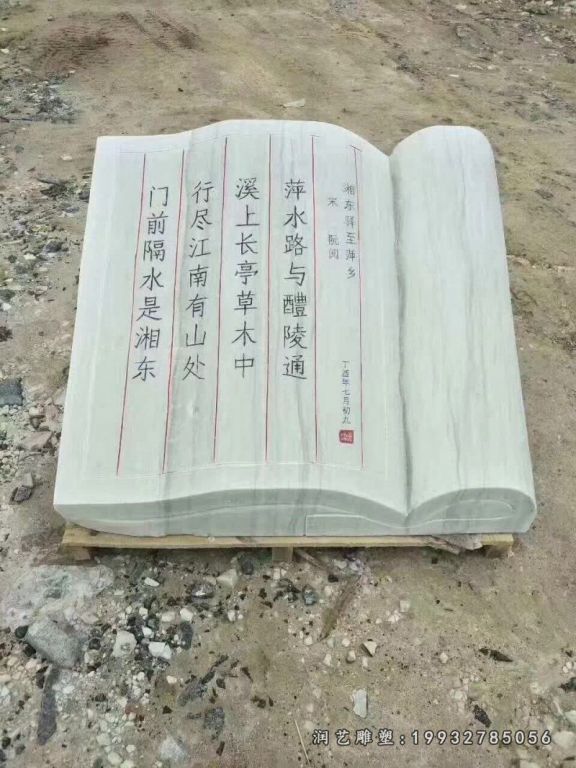 湘东驿至萍乡
宋 阮阅
萍水路与醴陵通
溪上长亭草木中
行尽江南有山处
门前隔水是湘东
丁酉年七月初九
润艺雕塑:19932785056